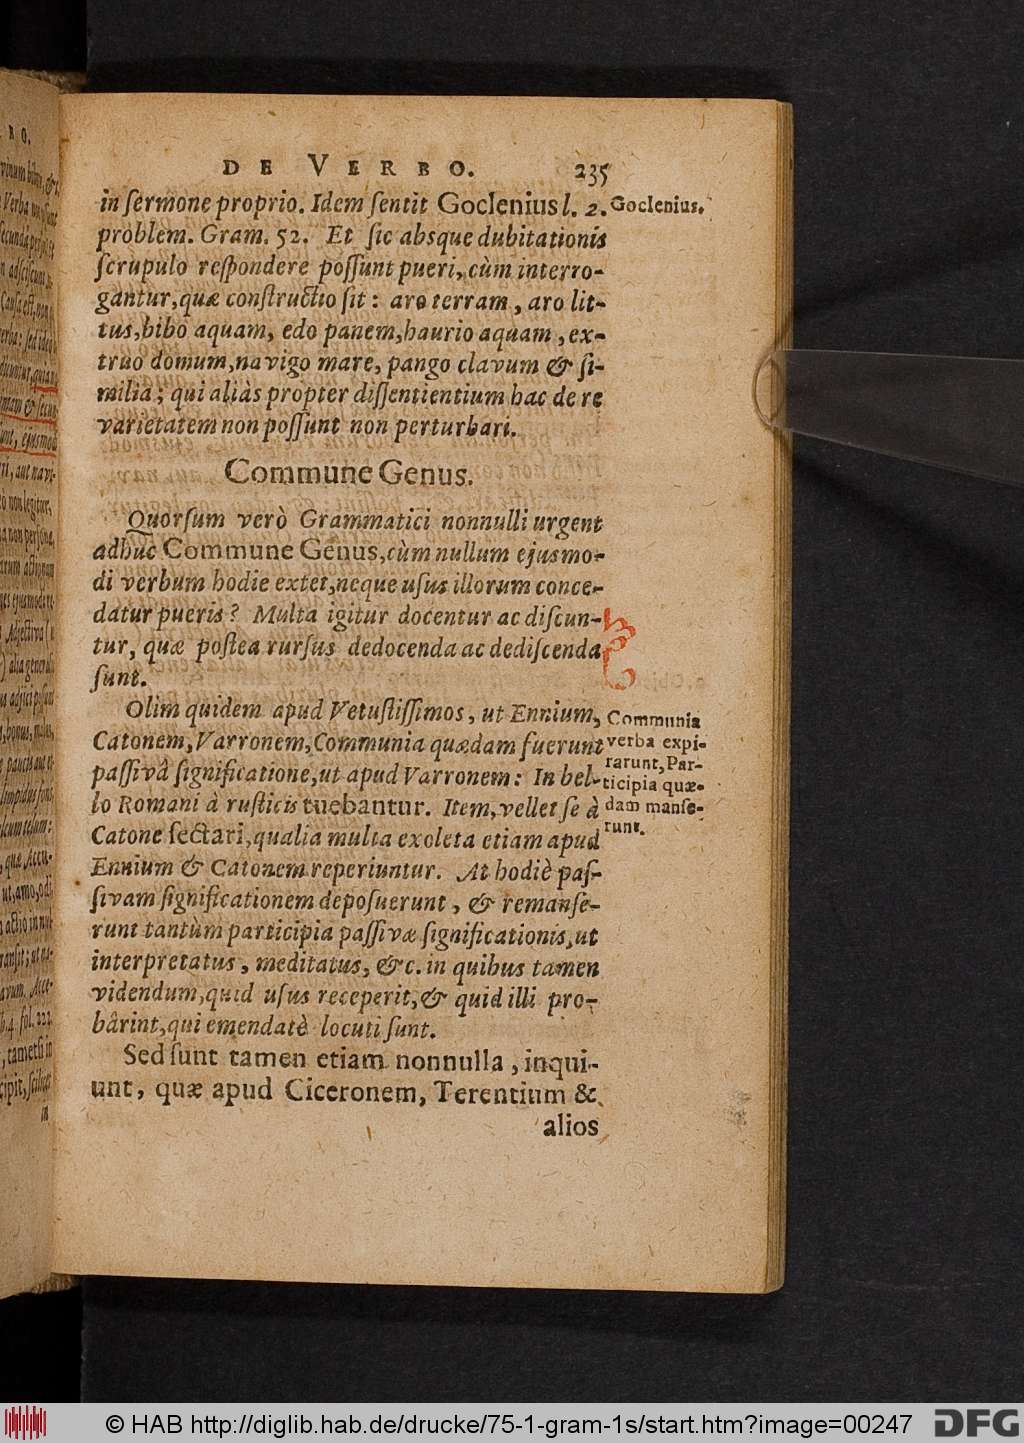 DE VERBO. 235
in ſermone proprio. Idem ſentit Goclenius l. 2.
problem. Gram. 52. Et ſic absque dubitationis
ſcrupulo reſpondere poſſunt pueri, cùm interro-
gantur, quæ conſtructio ſit: aro terram, aro lit-
tus, bibo aquam, edo panem, haurio aquam, ex-
truo domum, navigo mare, pango clavum & ſi-
milia; qui aliàs propter diſſentientium hac de re
varietatem non poſſunt non perturbari.
Goclenius.
Commune Genus.
Quorſum verò Grammatici nonnulli urgent
adhuc Commune Genus, cùm nullum ejusmo-
di verbum hodie extet, neque uſus illorum conce-
datur pueris? Multa igitur docentur ac diſcun-
tur, quæ poſtea rurſus dedocenda ac dediſcenda
ſunt.
Olim quidem apud Vetuſtiſſimos, ut Ennium,
Catonem, Varronem, Communia quædam fuerunt
paſſivâ ſignificatione, ut apud Varronem: In bel-
lo Romani à ruſticis tuebantur. Item, vellet ſe à
Catone ſectari, qualia multa exoleta etiam apud
Ennium & Catonem reperiuntur. At hodiè paſ-
ſivam ſignificationem depoſuerunt, & remanſe-
runt tantùm participia paſſivæ ſignificationis, ut
interpretatus, meditatus, &c. in quibus tamen
videndum, quid uſus receperit, & quid illi pro-
bârint, qui emendatè locuti ſunt.
Communia
verba expi-
rarunt, Par-
ticipia quæ-
dam manſe-
runt.
Sed ſunt tamen etiam nonnulla, inqui-
unt, quæ apud Ciceronem, Terentium &
alios
© HAB http://diglib.hab.de/drucke/75-1-gram-1s/start.htm?image=00247
DFG